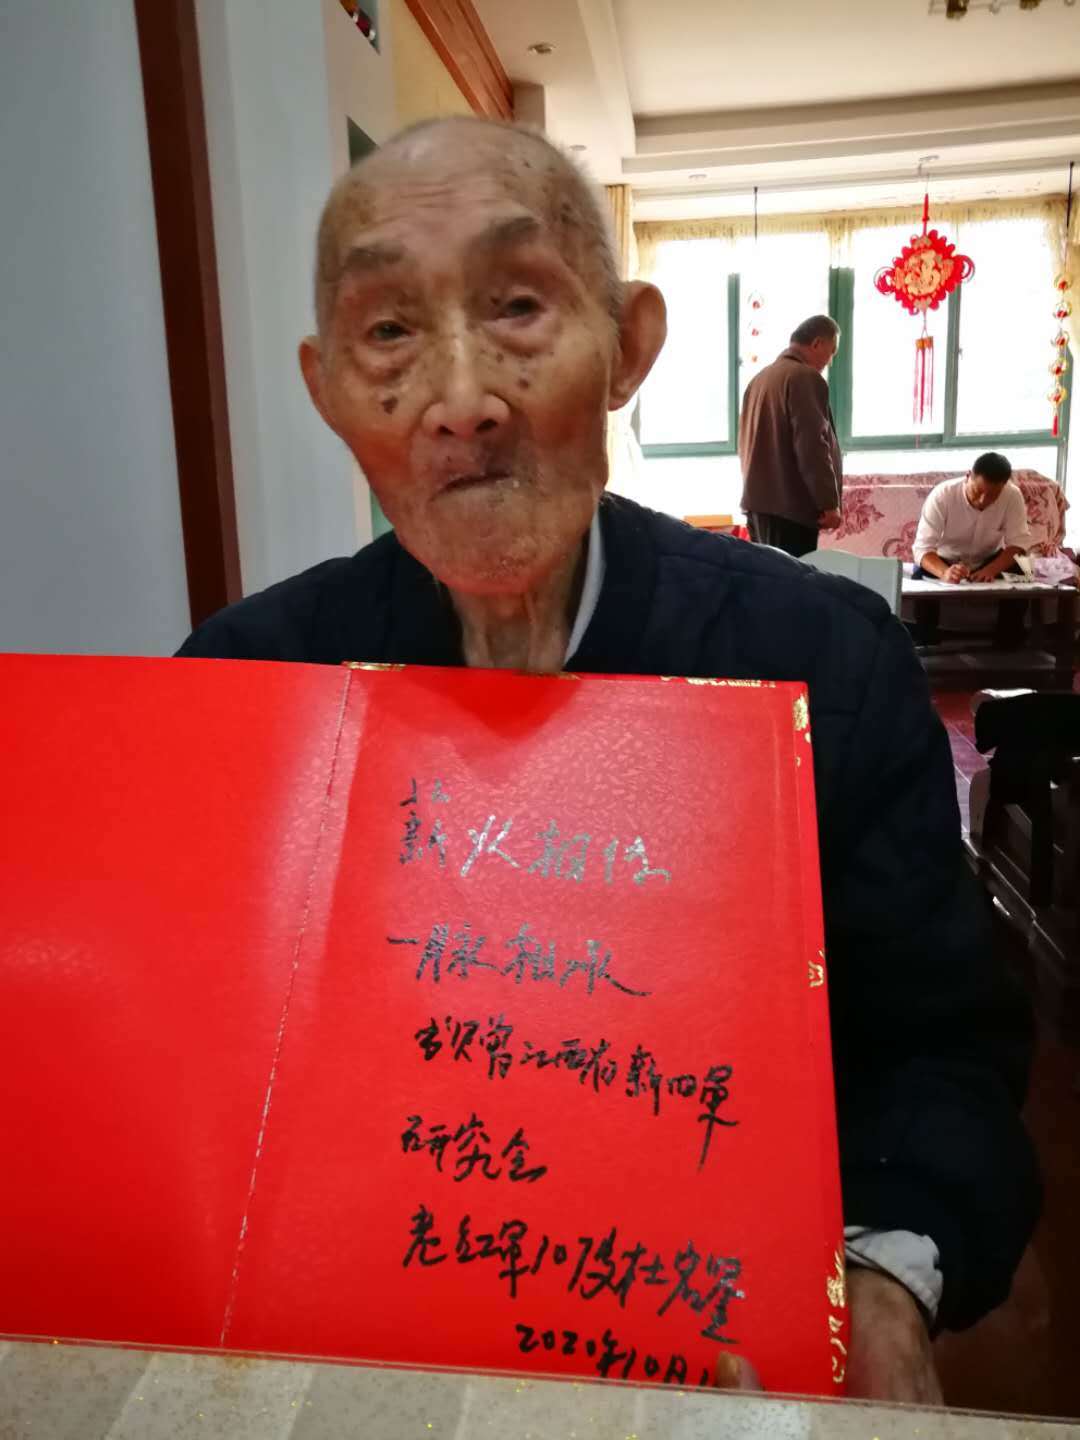 薪火相传
一脉相承
书贺赠江西省新四军
研究会
老红军107岁杜宏鉴
2020年10月1